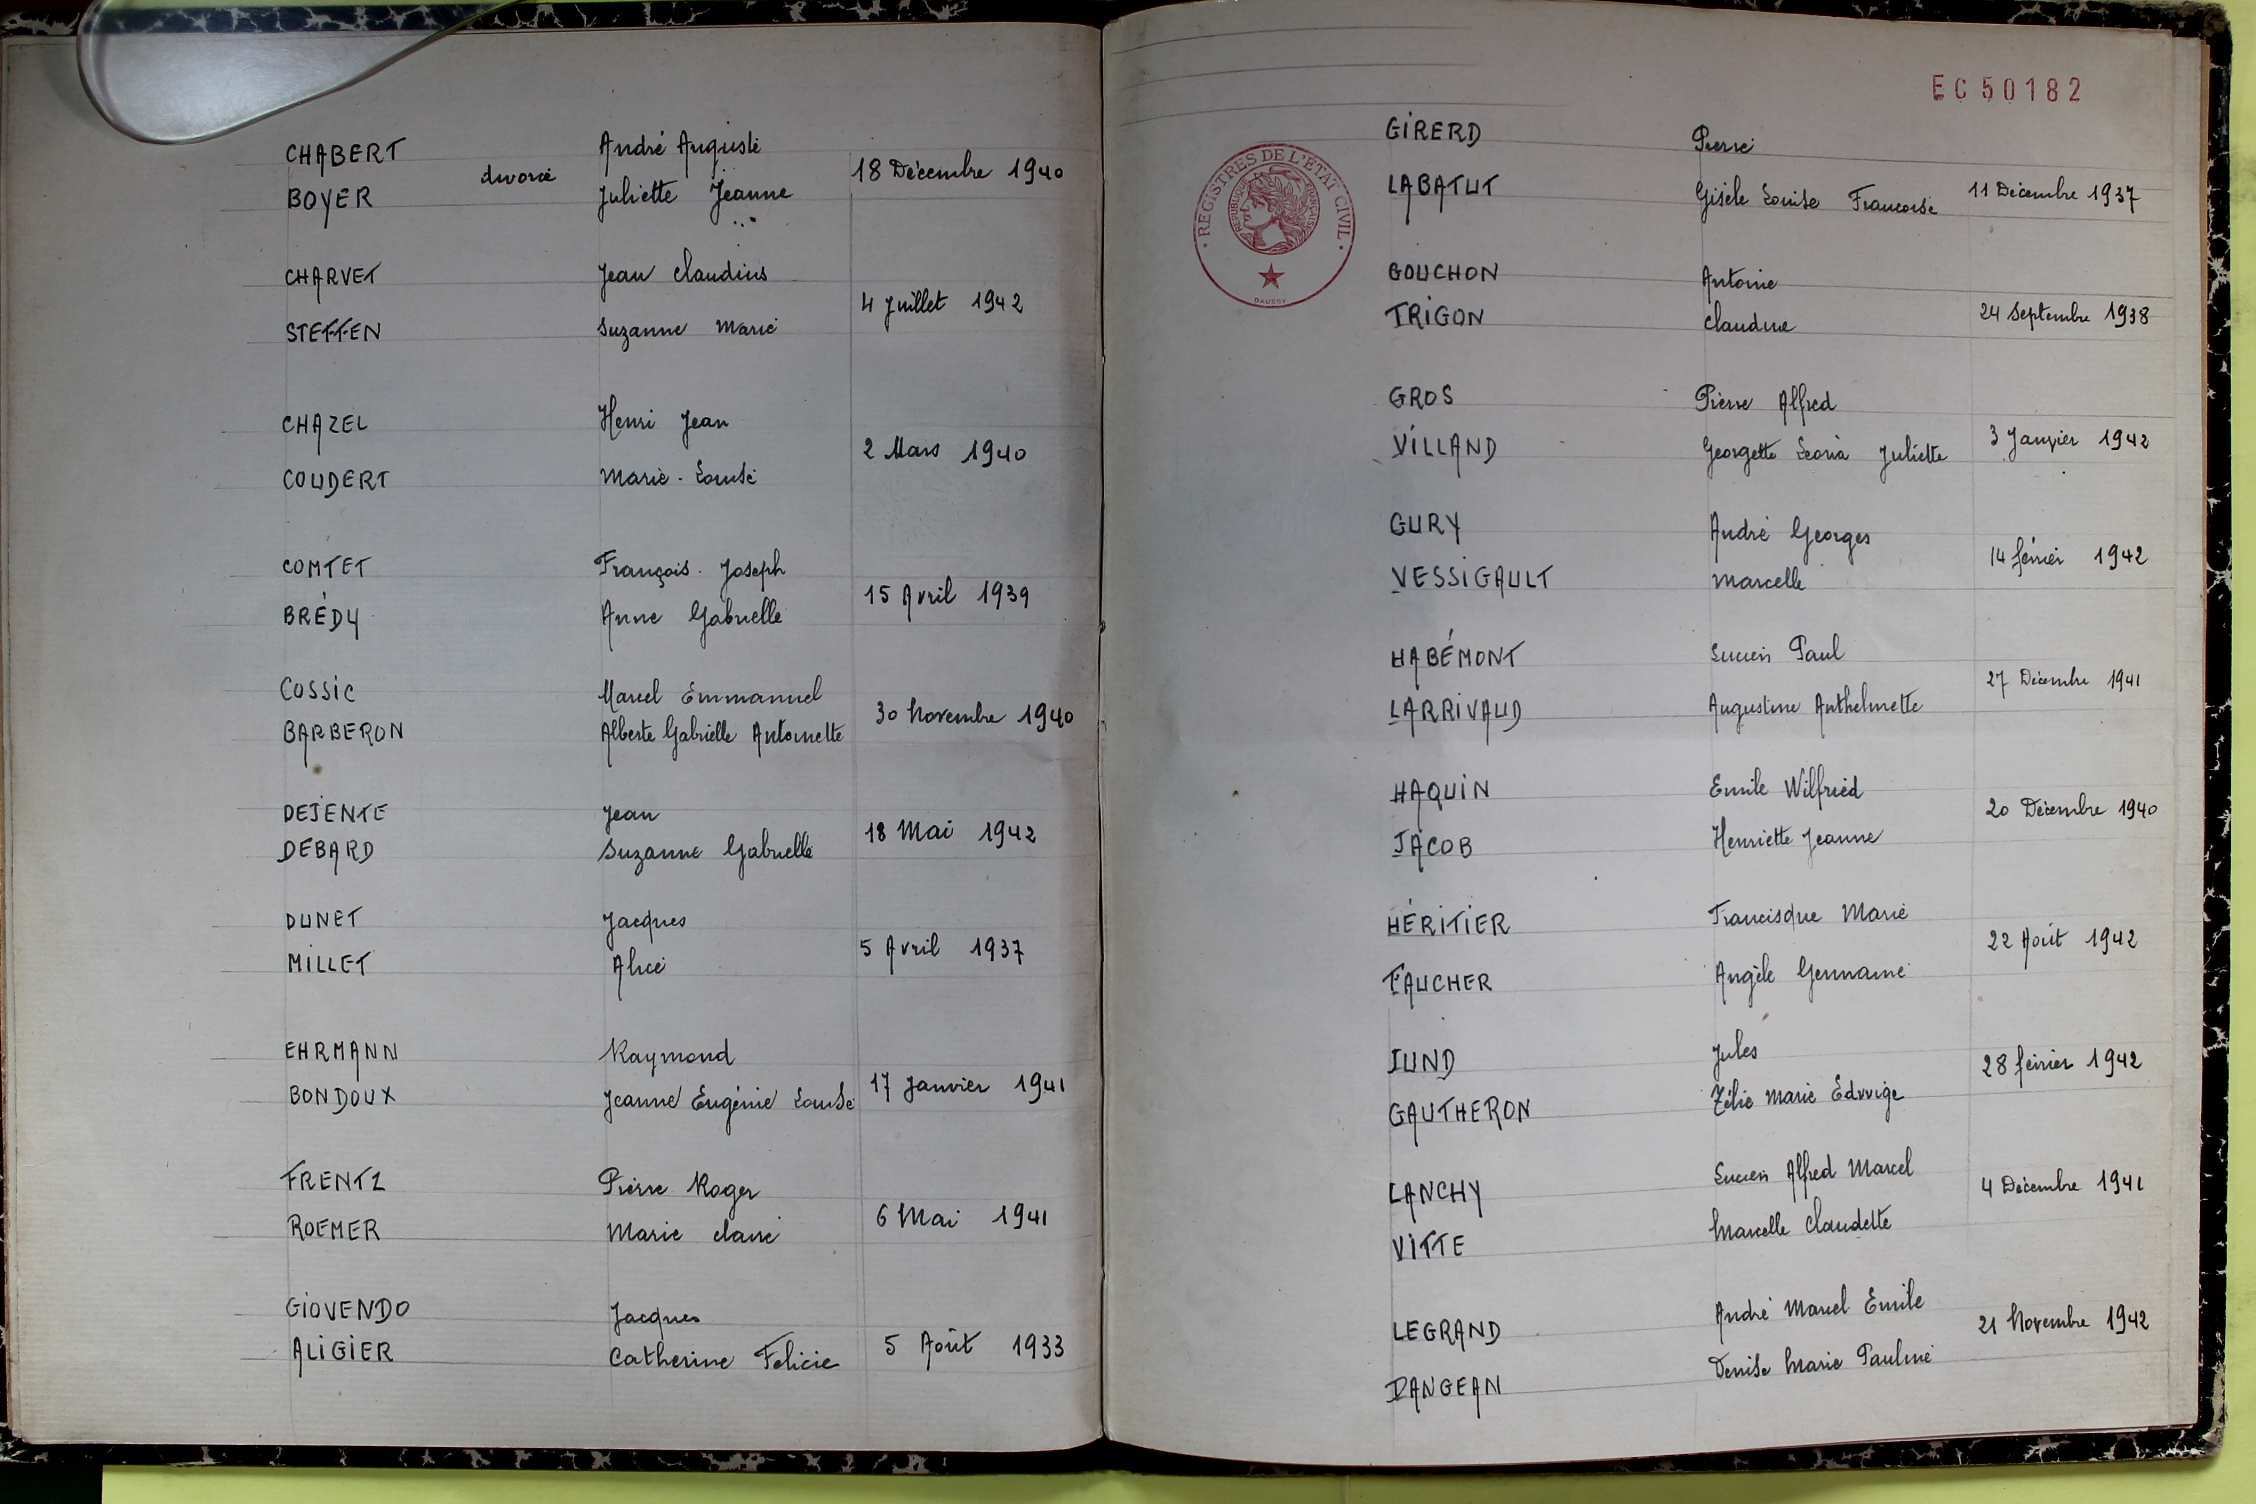 CHABERT André Auguste
divorcé 18 Décembre 1940
BOYER Juliette Jeanne
CHARVET Jean Claudius
4 Juillet 1942
STEFFEN Suzanne Marie
CHAZEL Henri Jean
2 Mars 1940
COUDERT Marie-Louise
COMTET François-Joseph
15 Avril 1939
BRÉDY Anne Gabrielle
COSSIC Marcel Emmanuel
30 Novembre 1940
BARBERON Alberte Gabrielle Antoinette
DEJENTE Jean
18 Mai 1942
DEBARD Suzanne Gabrielle
DUNET Jacques
5 Avril 1937
MILLET Alice
EHRMANN Raymond
17 Janvier 1941
BONDOUX Jeanne Eugénie Louise
FRENTZ Pierre Roger
6 Mai 1941
ROEMER Marie Claire
GIOVENDO Jacques
5 Août 1933
ALIGIER Catherine Felicie
EC 50182
REGISTRES DE L'ÉTAT CIVIL
RÉPUBLIQUE FRANÇAISE
GIRERD Pierre
LABATUT Gisèle Louise Françoise 11 Décembre 1937
GOUCHON Antoine
TRIGON Claudine 24 Septembre 1938
GROS Pierre Alfred
3 Janvier 1942
VILLAND Georgette Léonia Juliette
GURY André Georges
14 février 1942
VESSIGAULT Marcelle
HABÉMONT Lucien Paul
27 Décembre 1941
LARRIVAUD Augustine Anthelmette
HAQUIN Emile Wilfried
20 Décembre 1940
JACOB Henriette Jeanne
HÉRITIER Francisque Marie
22 Août 1942
FAUCHER Angèle Germaine
JUND Jules
28 février 1942
GAUTHERON Zélie Marie Edwige
LANCHY Lucien Alfred Marcel
4 Décembre 1941
VITTE Marcelle Claudette
LEGRAND André Marcel Emile
21 Novembre 1942
DANGEAN Denise Marie Pauline